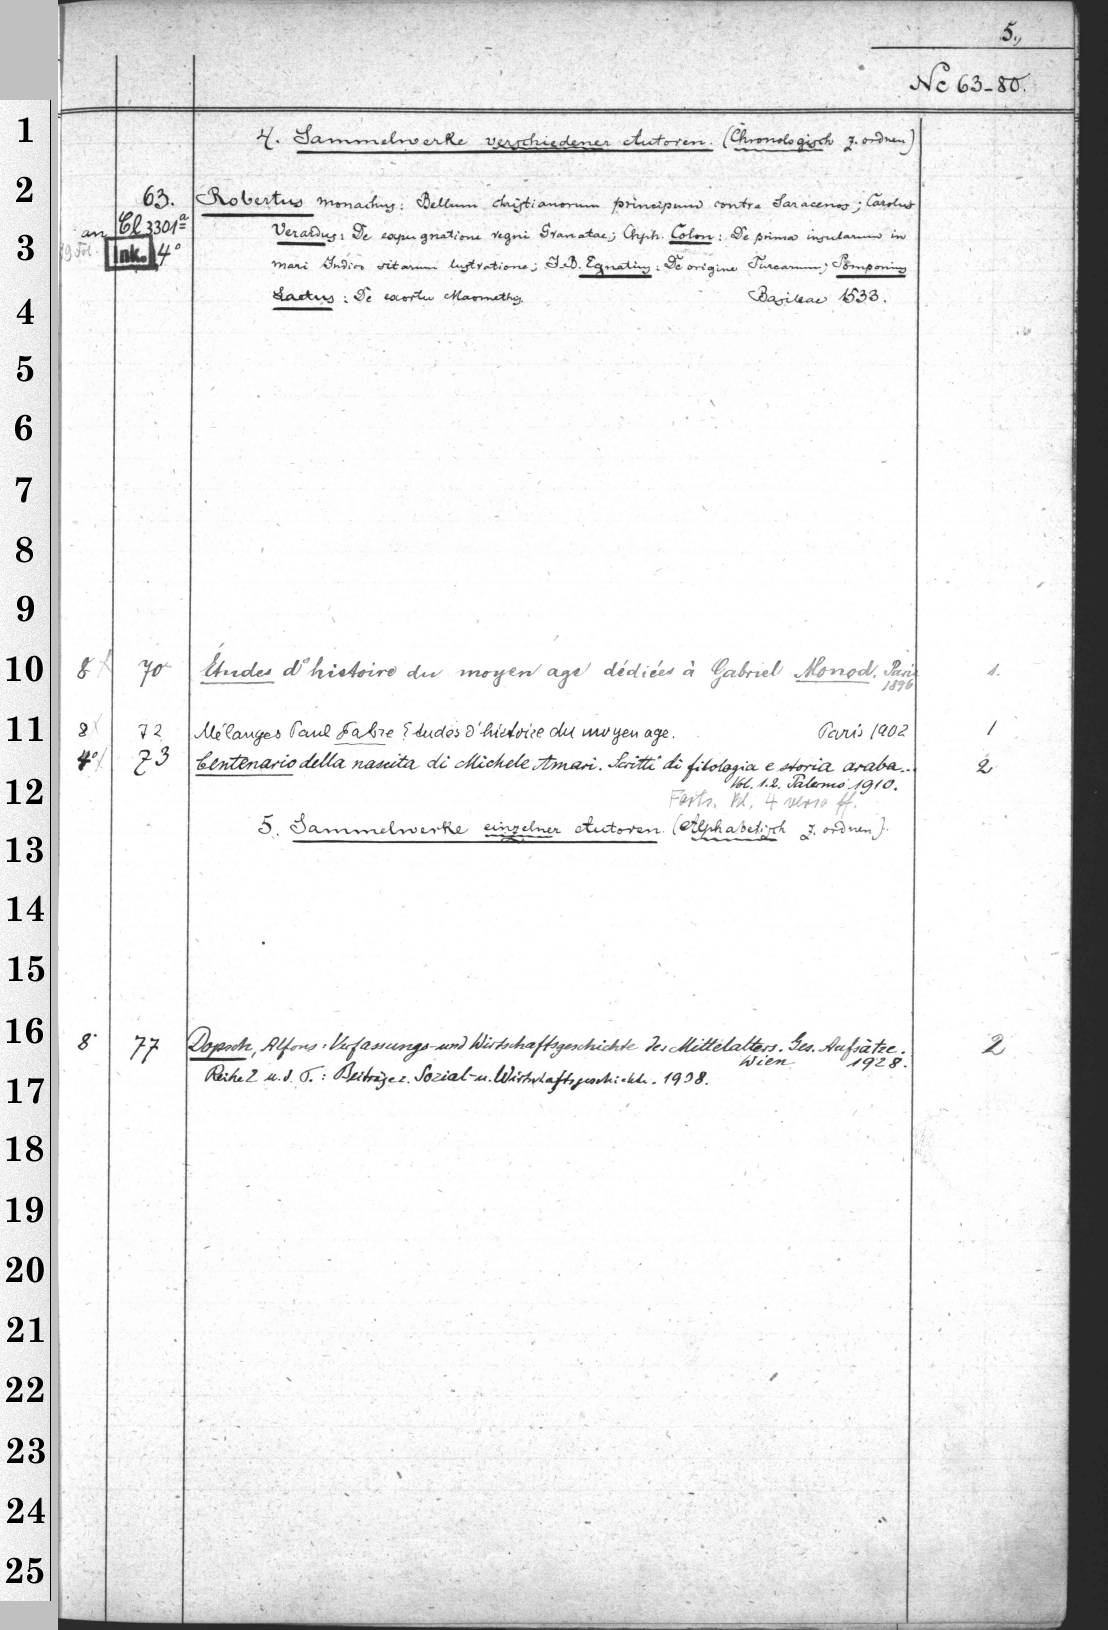 5.
Nc 63-80.
1
4. Sammelwerke verschiedener Autoren. (Chronologisch z. ordnen)
2
63. Robertus monachus: Bellum christianorum principum contra Saracenos; Carolus
an Cl 3301a
Verardus: De expugnatione regni Granatae; Chph. Colon: De prima insularum in
3
Fol. Ink. 4°
mari Indico sitarum lustratione; J.B. Egnatius: De origine Turcarum; Pomponius
4
Laetus: De exortu Maomethis. Basileae 1533.
5
6
7
8
9
10
8 70 Études d'histoire du moyen age dédiées à Gabriel Monod. Paris 1896 1.
11
8 72 Mélanges Paul Fabre Etudes d'histoire du moyen age. Paris 1902 1
4° 73 Centenario della nascita di Michele Amari. Scritti di filologia e storia araba... 2
12
Vol. 1.2. Palermo 1910.
Forts. Bl. 4 verso ff.
5. Sammelwerke einzelner Autoren. (Alphabetisch z. ordnen).
13
14
15
16
8° 77 Dopsch, Alfons: Verfassungs- und Wirtschaftsgeschichte des Mittelalters. Ges. Aufsätze. 2
Wien 1928.
Reihe 2 u. d. T.: Beiträge z. Sozial- u. Wirtschaftsgeschichte. 1938.
17
18
19
20
21
22
23
24
25